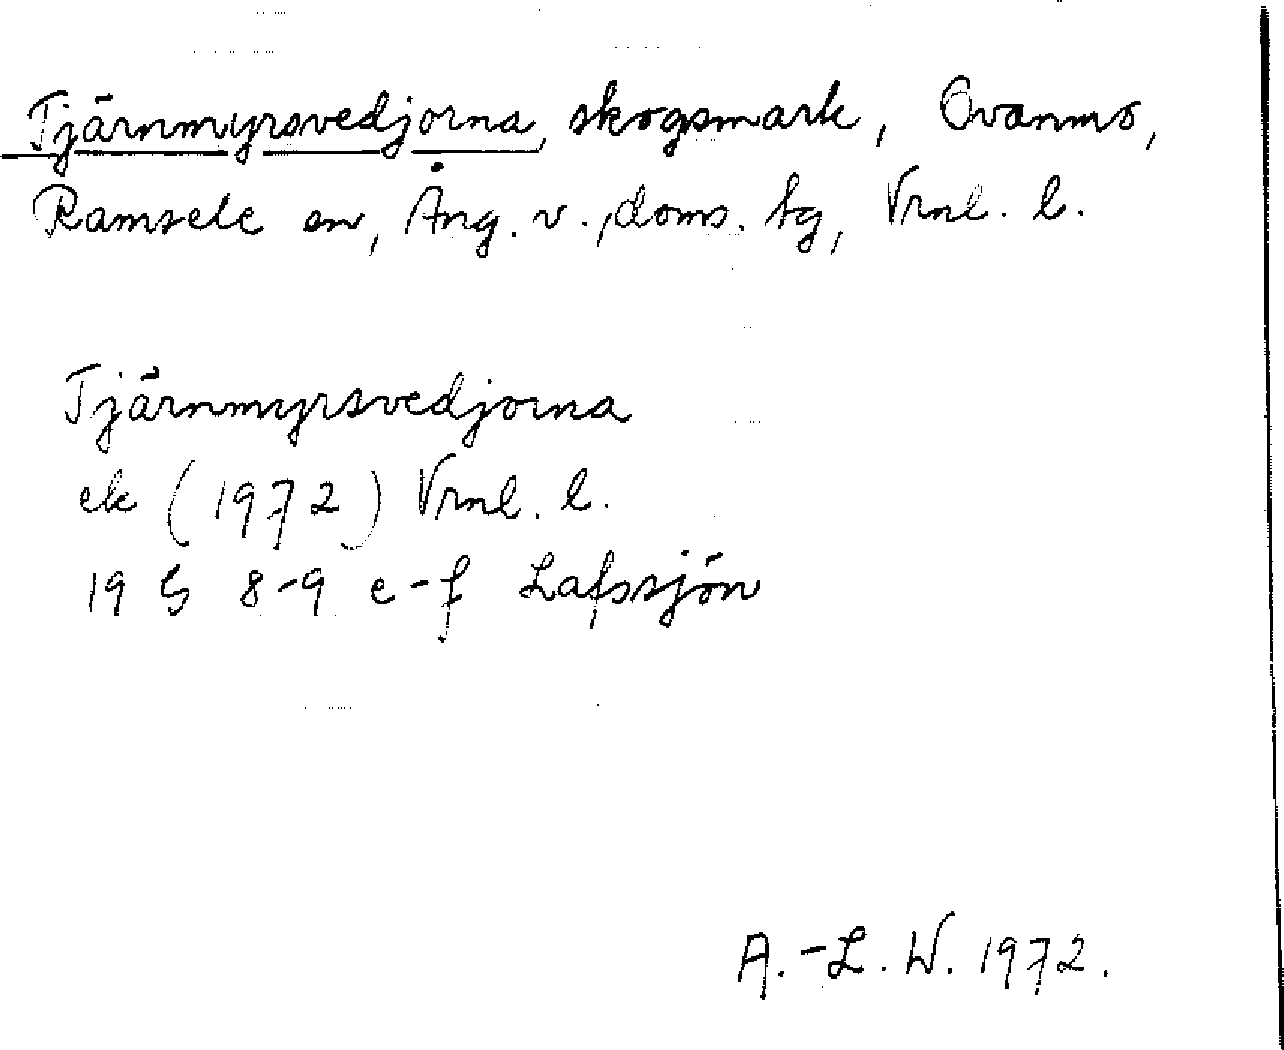 Tjärnmyrsvedjorna, skogsmark, Ovanmo,
Ramsele sn, Ång. v. doms. tg, Vrnl. l.
Tjärnmyrsvedjorna
ek (1972) Vrnl. l.
19 G 8-9 e-f Lafssjön
A.-L. W. 1972.